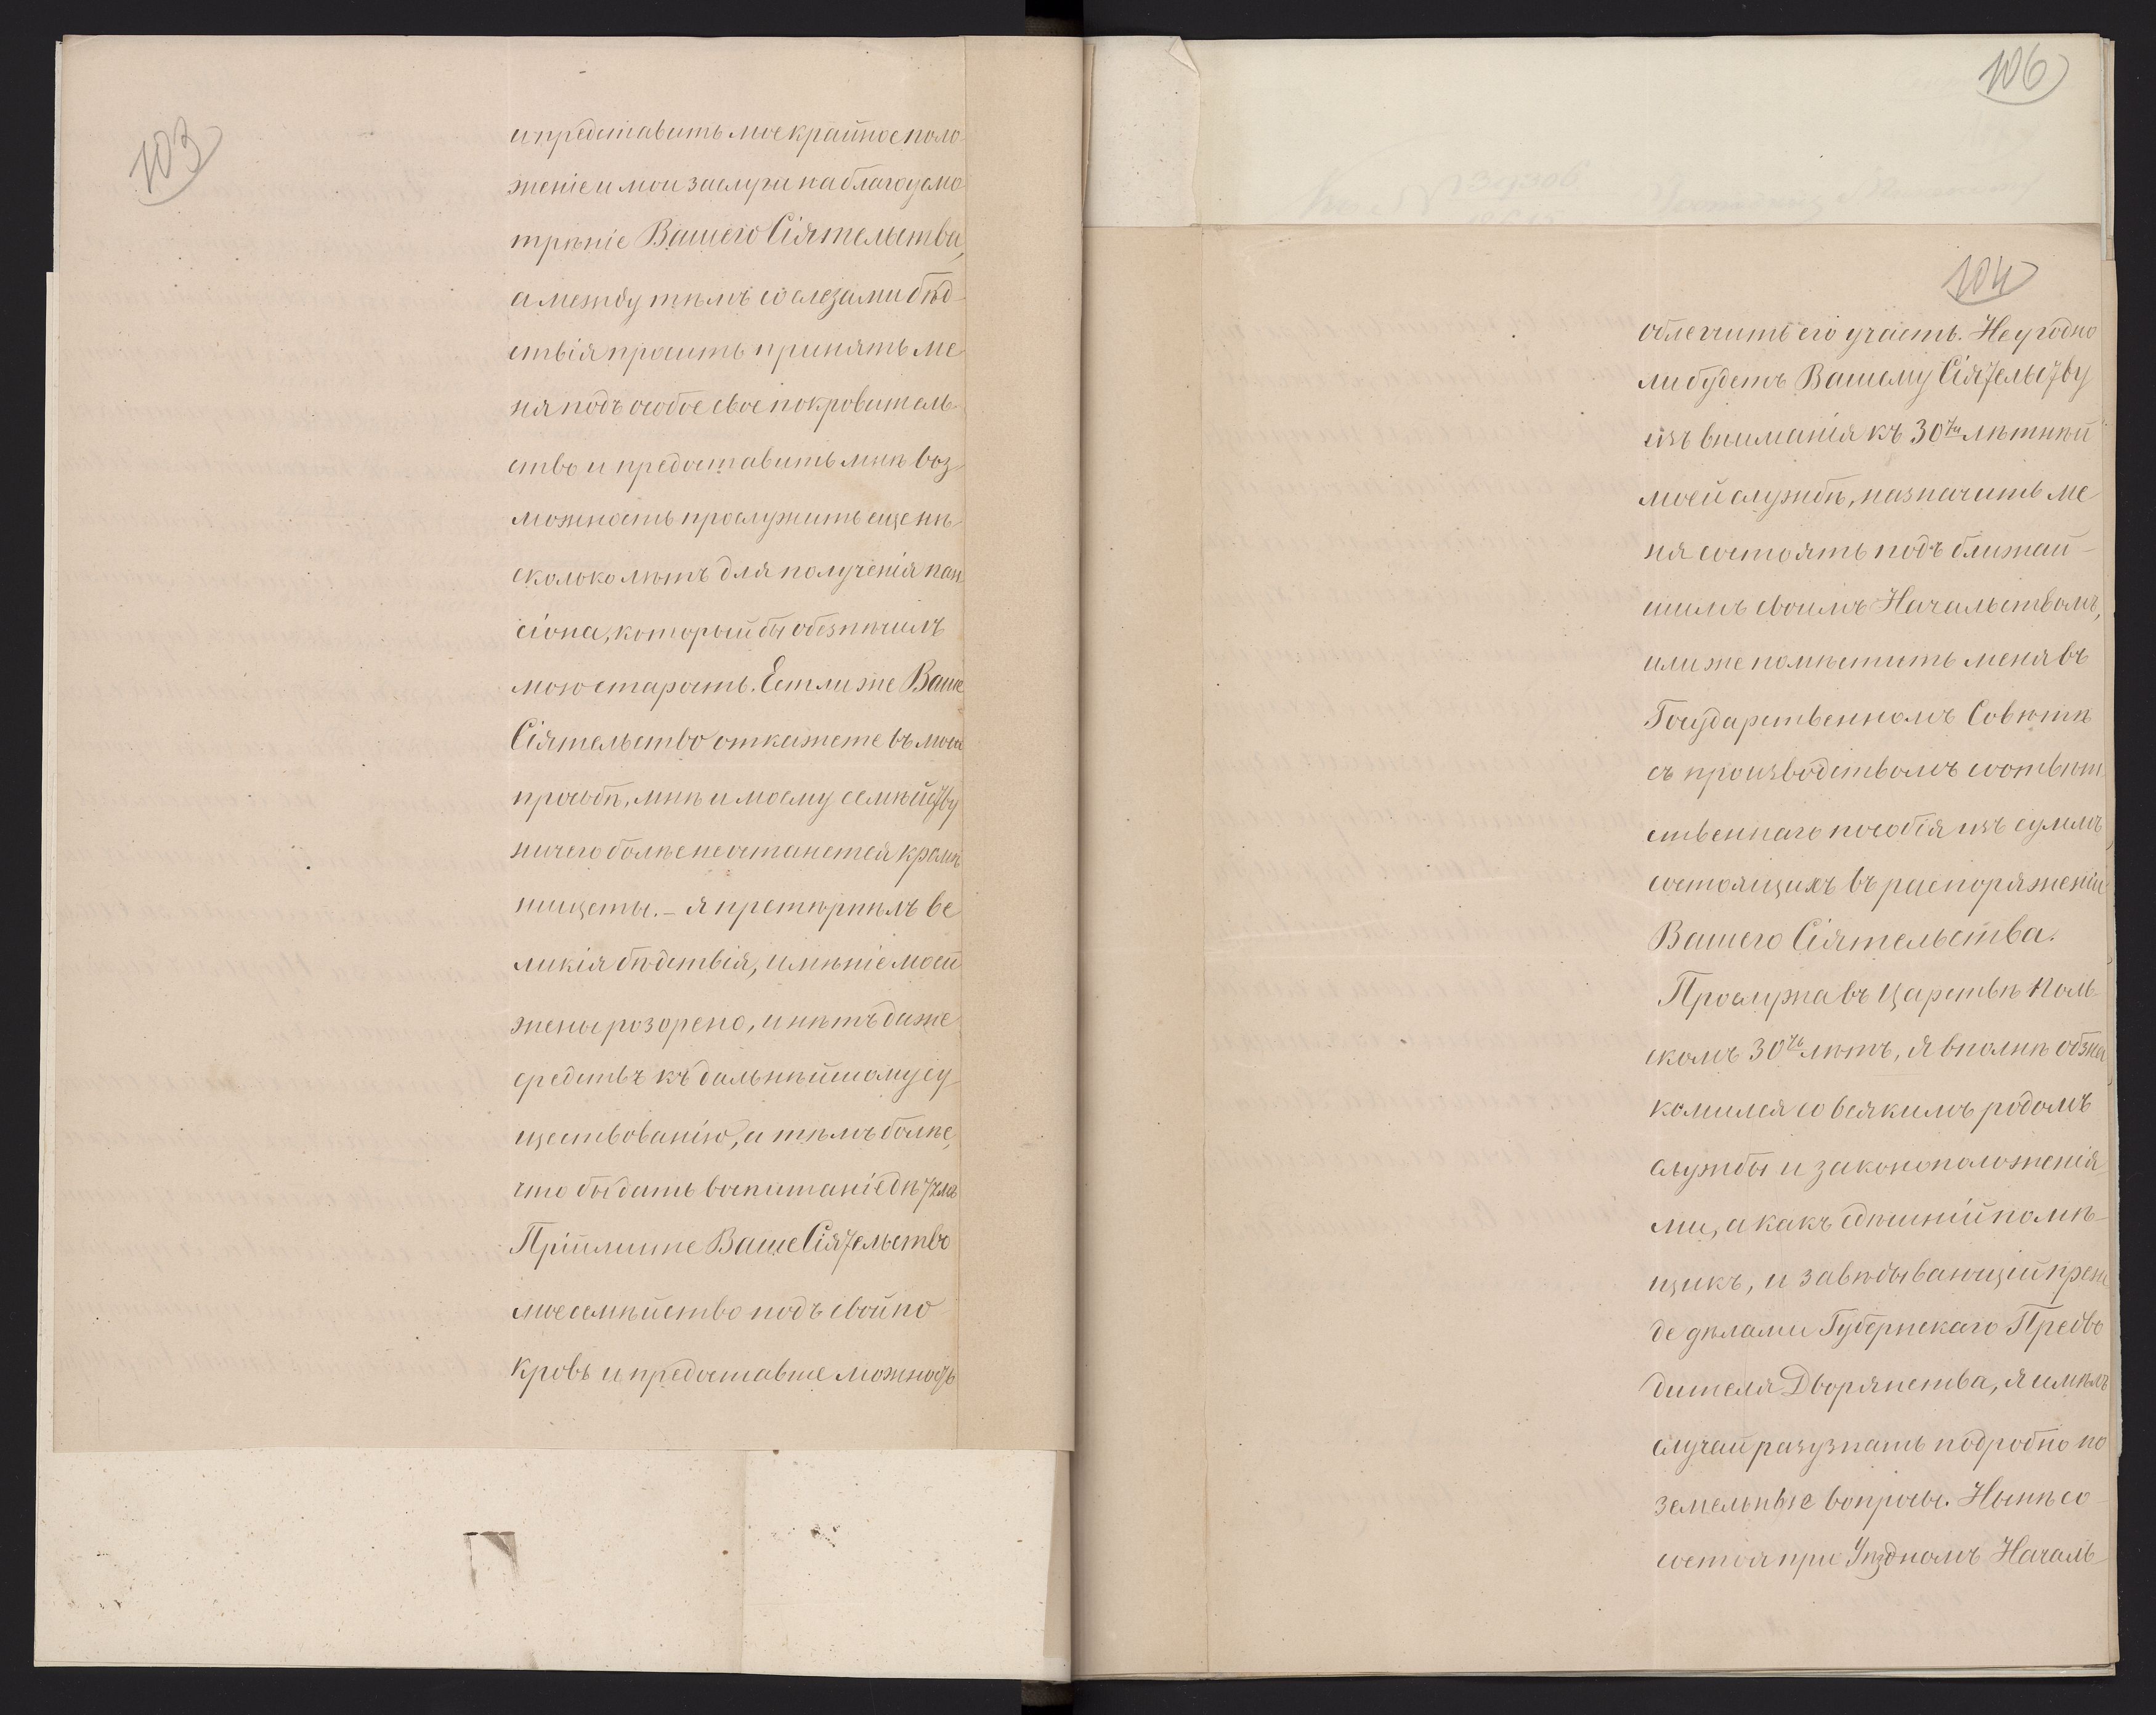 103
и представить мое крайное поло-
женіе и мои заслуги на благоусмо
трѣніе Вашего Сіятельства,
а между тѣмъ со слезами бѣд-
ствія просить принять ме
ня подъ особое свое покровитель-
ство и предоставить мнѣ воз-
можность прослужить еще нѣ-
сколоко лѣтъ для полученія пан
сіона, который бы обезпѣчилъ
мою старость. Естли же Ваше
Сіятельство откажете въ моей
прозьбѣ, мнѣ и моему семѣйству
ничего болѣе не останется кромѣ
нищеты. – я претѣрпѣлъ ве
ликія бѣдствія, имѣніе моей
жены розорено, и нѣтъ даже
средствъ къ дальнѣйшому су-
ществованію, а тѣмъ болѣе,
что бы дать воспитаніе дѣтямъ
Пріймите Ваше Сіятельство
мое семѣйство подъ свой по
кровъ и предоставте можность
106
104
облегчить его участь. Неугодно
ли будетъ Вашему Сіятельству
изъ вниманія къ 30ти лѣтнѣй
моей службѣ, назначить ме
ня состоять подъ ближай-
шимъ своимъ Начальствомъ,
или же помѣстить меня въ
Государственномъ Совѣтѣ
съ производствомъ соотвѣт
ственнаго пособія изъ суммъ
состоящихъ въ распоряженіи
Вашего Сіятельства.
Прослужа въ Царствѣ Поль
скомъ 30ть лѣтъ, я вполнѣ обзна
комился со всякимъ родомъ
службы и законоположенія
ми, а какъ здѣшній помѣ-
щикъ, и завѣдывающій преж
де дѣлами Губернскаго Предво
дителя Дворянства, я имѣлъ
случай разузнать подробно по
земельные вопросы. Нынѣ со
состоя при Уѣздномъ Началь